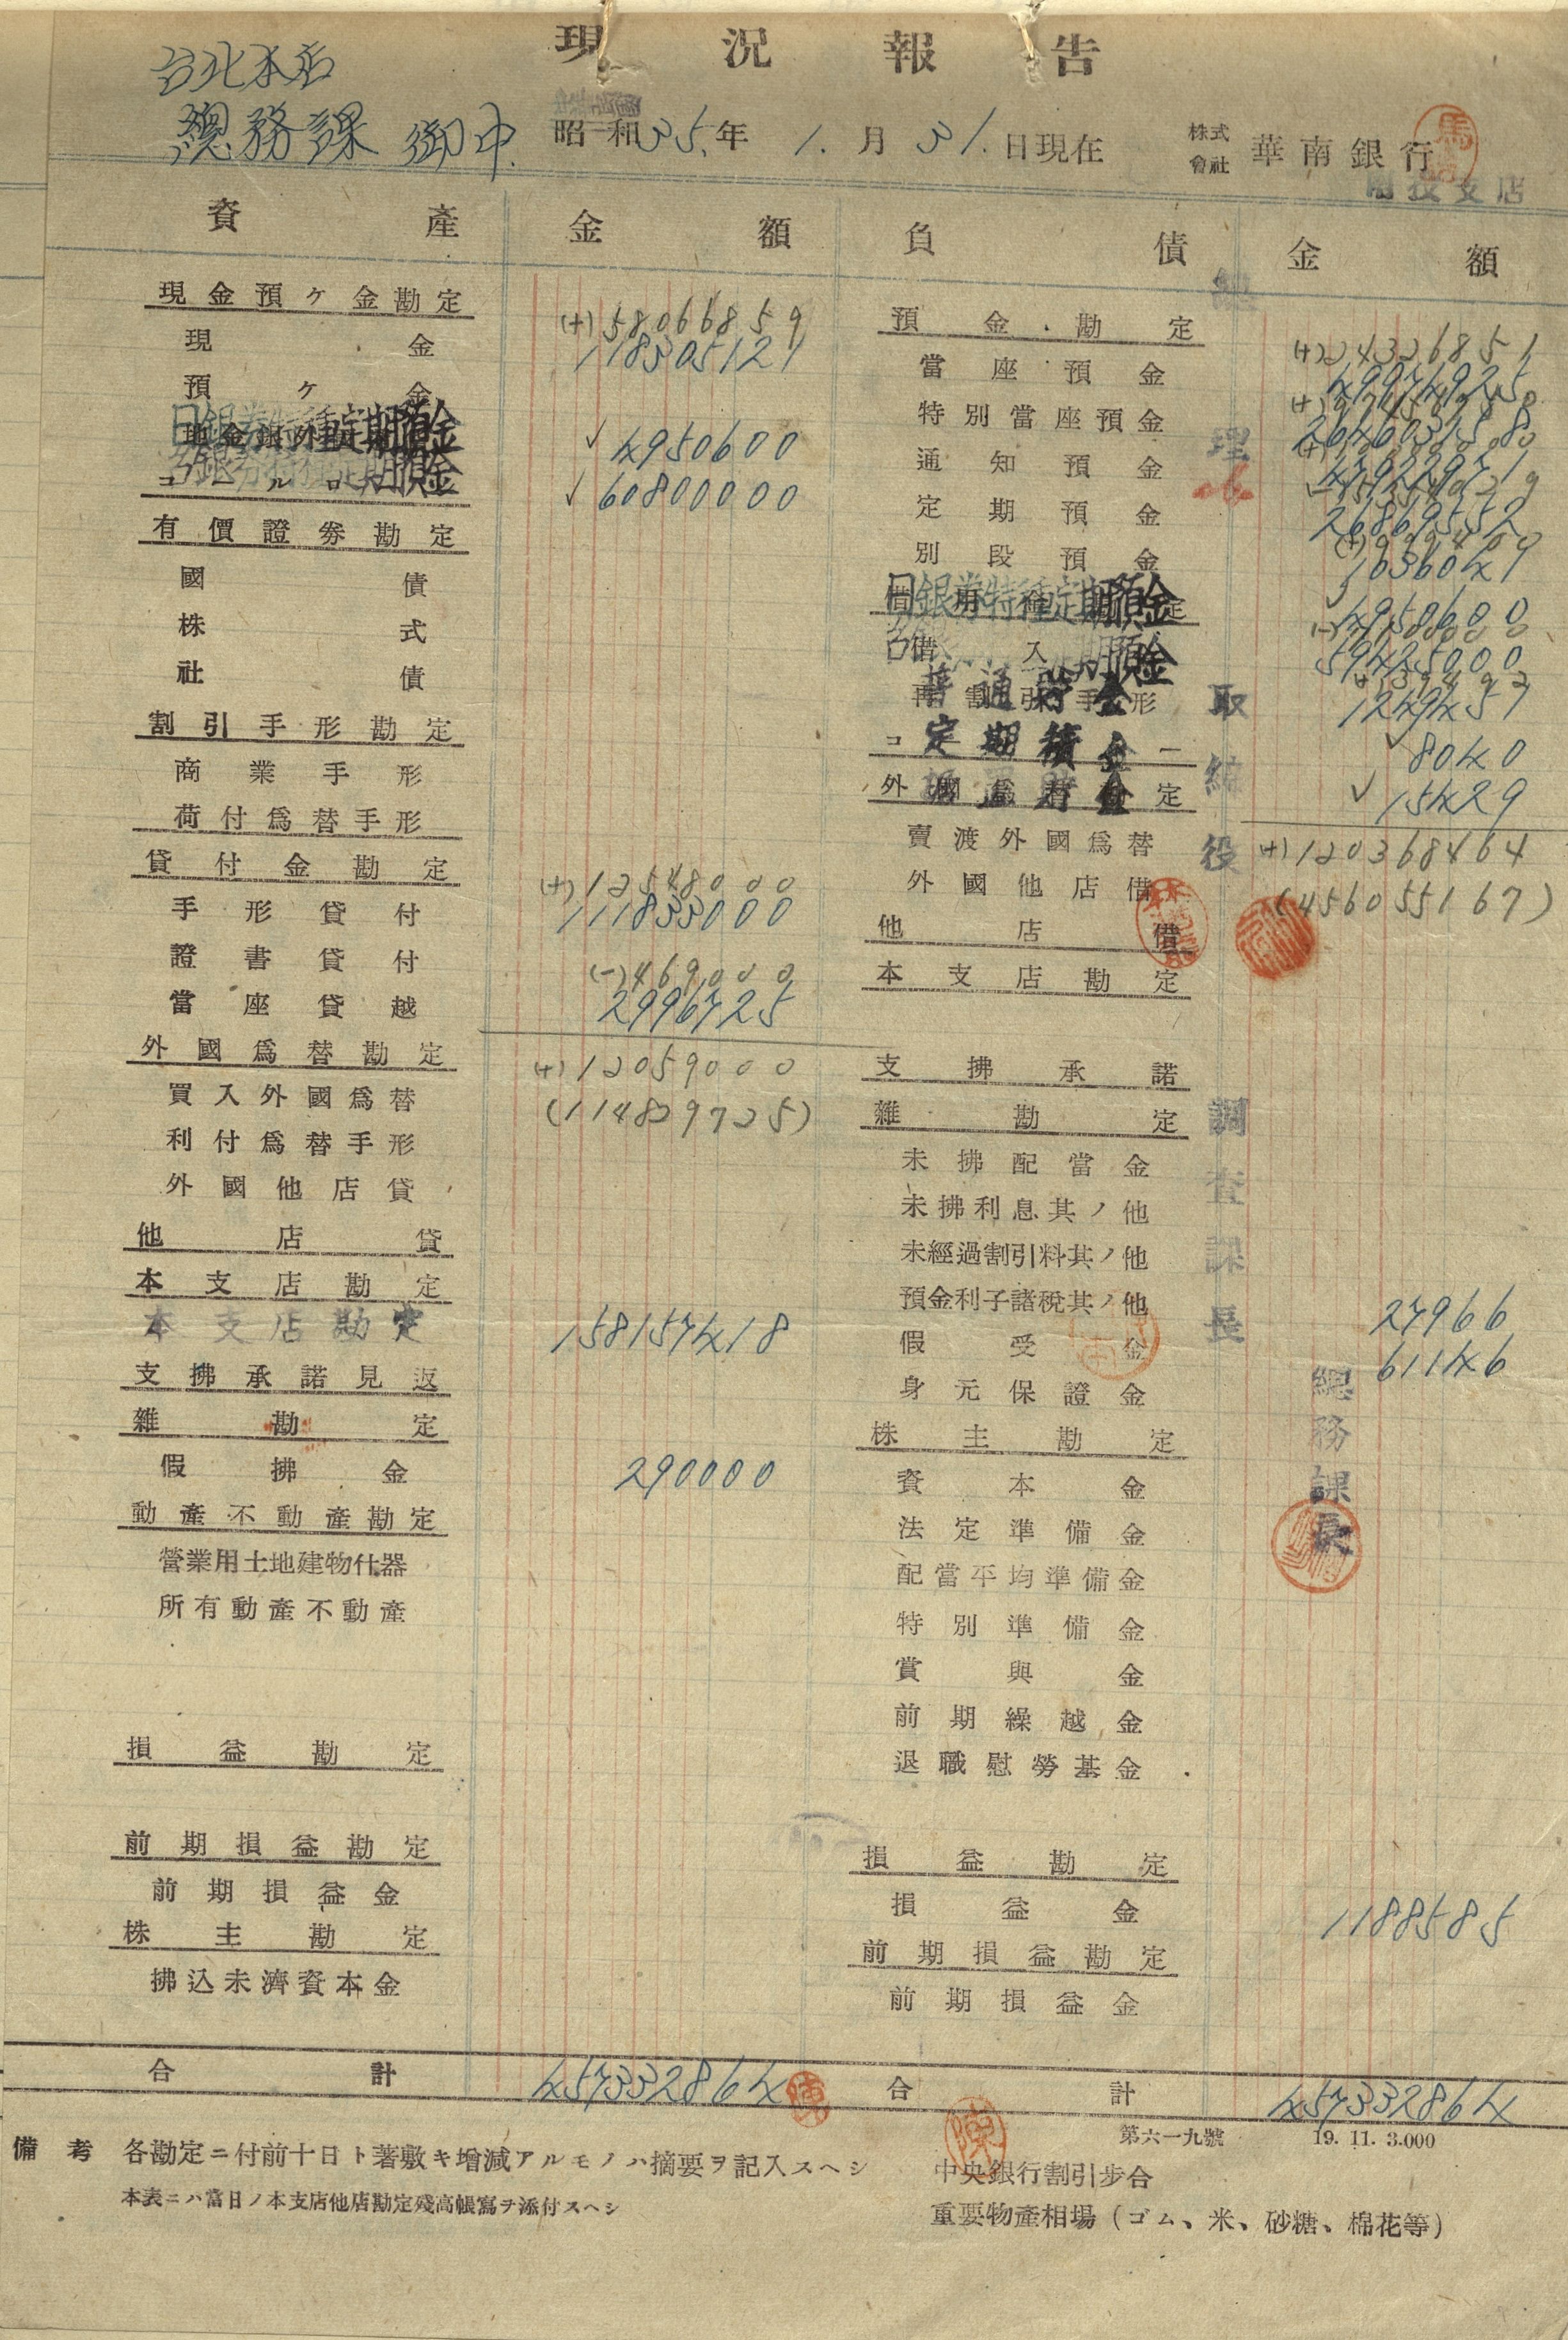 現況報告
台北本店
總務課 御中
昭和35年 1.月31.日現在
株式會社 華南銀行
南投支店
資產 金額 負債 金額
現金預ケ金勘定
(+)58066859
現金 118305121
預ケ金
日銀券特種定期預金 ✓4950600
台銀券特種定期預金 ✓60800000
有價證券勘定
國債
株式
社債
割引手形勘定
商業手形
荷付爲替手形
貸付金勘定
(+)12548000
手形貸付 111833000
證書貸付
(-)469000
當座貸越 2996725
外國爲替勘定
(+)12059000
買入外國爲替 (114829725)
利付爲替手形
外國他店貸
他店貸
本支店勘定
本支店勘定 158157418
支拂承諾見返
雜勘定
假拂金 290000
動產不動產勘定
營業用土地建物什器
所有動產不動產
損益勘定
前期損益勘定
前期損益金
株主勘定
拂込未濟資本金
合計 457332864
預金勘定
(+)24326851
當座預金 49974925
特別當座預金
通知預金
定期預金 26869552
別段預金
日銀券特種定期預金 4950600
台銀券特種定期預金 59425000
普通貯金
再割引手形
定期積金 ✓8040
外國爲替勘定 ✓15429
賣渡外國爲替 (+)120368464
外國他店借 (456055167)
他店借
本支店勘定
支拂承諾
雜勘定
未拂配當金
未拂利息其ノ他
未經過割引料其ノ他
預金利子諸稅其ノ他 27966
假受金 61146
身元保證金
株主勘定
資本金
法定準備金
配當平均準備金
特別準備金
賞與金
前期繰越金
退職慰勞基金
損益勘定
損益金 1188585
前期損益勘定
前期損益金
合計 457332864
總理
取締役
調查課長
總務課長
馬
陳
陳
第六一九號 19. 11. 3.000
備考 各勘定ニ付前十日ト著敷キ增減アルモノハ摘要ヲ記入スヘシ
本表ニハ當日ノ本支店他店勘定殘高帳寫ヲ添付スヘシ
中央銀行割引步合
重要物產相場(ゴム、米、砂糖、棉花等)